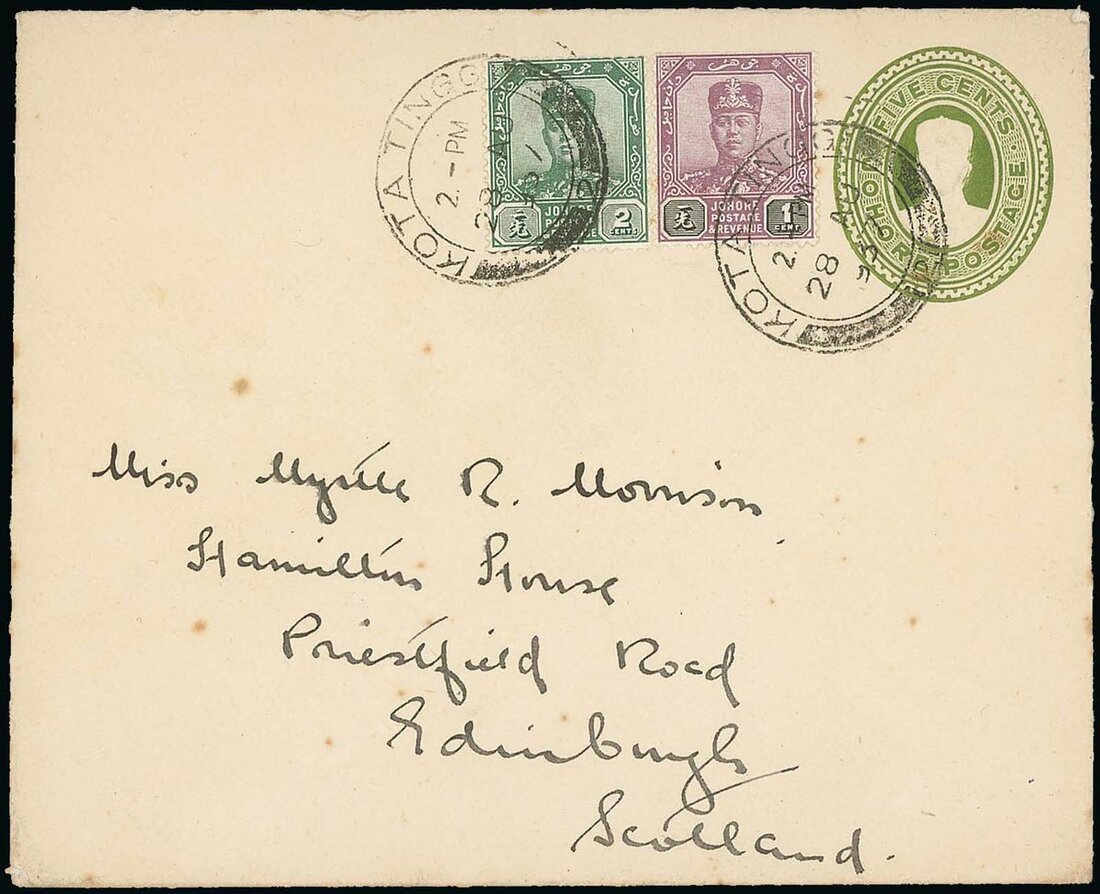 KOTA TINGGI
2.-PM
28 AU
جوهر
2
CENTS
جوهر
JOHORE
POSTAGE
& REVENUE
1
CENT
KOTA TINGGI
2.-PM
28 AU
FIVE CENTS
JOHORE POSTAGE
Miss Myrtle R. Morrison
Hamilton House
Priestfield Road
Edinburgh
Scotland.